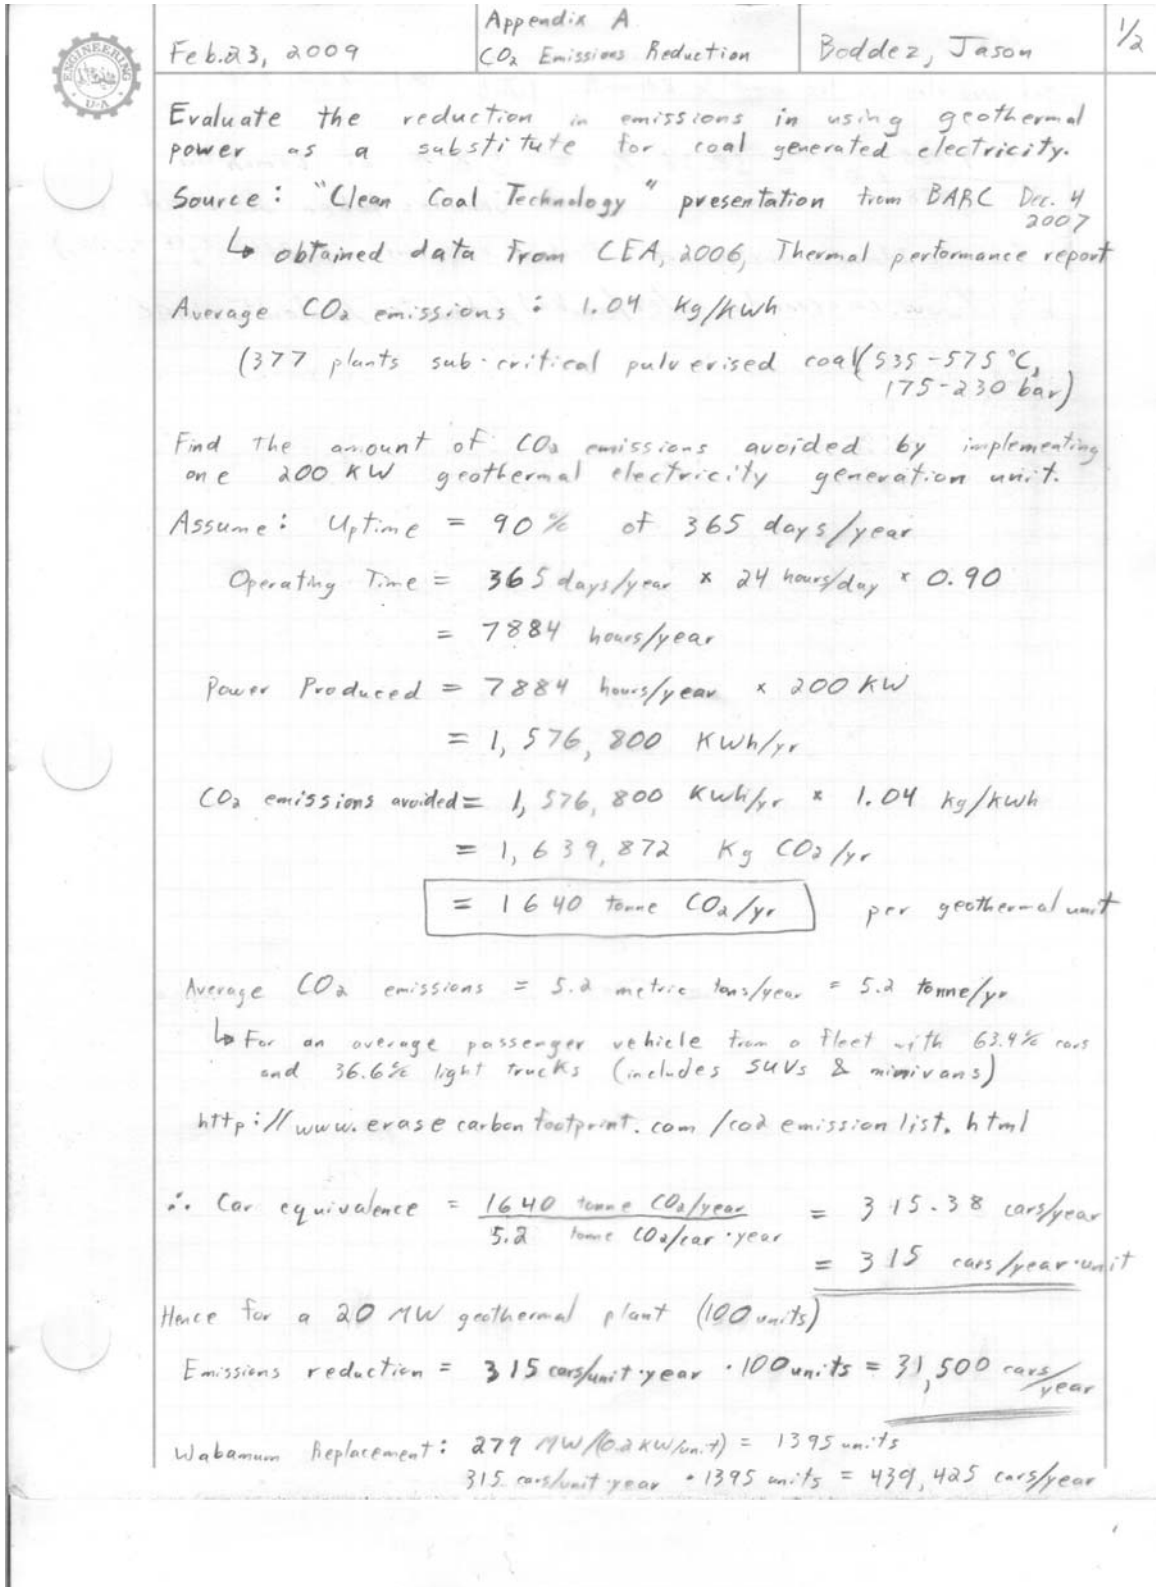 ENGINEERING
U-A
Feb.23, 2009
Appendix A
CO₂ Emissions Reduction
Boddez, Jason
1/2
Evaluate the reduction in emissions in using geothermal
power as a substitute for coal generated electricity.
Source: "Clean Coal Technology" presentation from BARC Dec. 4
2007
↳ obtained data from CEA, 2006, Thermal performance report
Average CO₂ emissions : 1.04 Kg/KWh
(377 plants sub-critical pulverised coal (535-575 °C,
175-230 bar)
Find the amount of CO₂ emissions avoided by implementing
one 200 KW geothermal electricity generation unit.
Assume: Uptime = 90% of 365 days/year
Operating Time = 365 days/year × 24 hours/day × 0.90
= 7884 hours/year
Power Produced = 7884 hours/year × 200 KW
= 1,576,800 KWh/yr
CO₂ emissions avoided = 1,576,800 KWh/yr × 1.04 kg/kWh
= 1,639,872 Kg CO₂/yr
= 1640 tonne CO₂/yr per geothermal unit
Average CO₂ emissions = 5.2 metric tons/year = 5.2 tonne/yr
↳ For an average passenger vehicle from a fleet with 63.4% cars
and 36.6% light trucks (includes SUVs & minivans)
http://www.erasecarbonfootprint.com/co2emissionlist.html
∴ Car equivalence = 1640 tonne CO₂/year = 315.38 cars/year
5.2 tonne CO₂/car·year
= 315 cars/year·unit
Hence for a 20 MW geothermal plant (100 units)
Emissions reduction = 315 cars/unit·year · 100 units = 31,500 cars/year
Wabamum Replacement: 279 MW/(0.2 KW/unit) = 1395 units
315 cars/unit·year · 1395 units = 439,425 cars/year